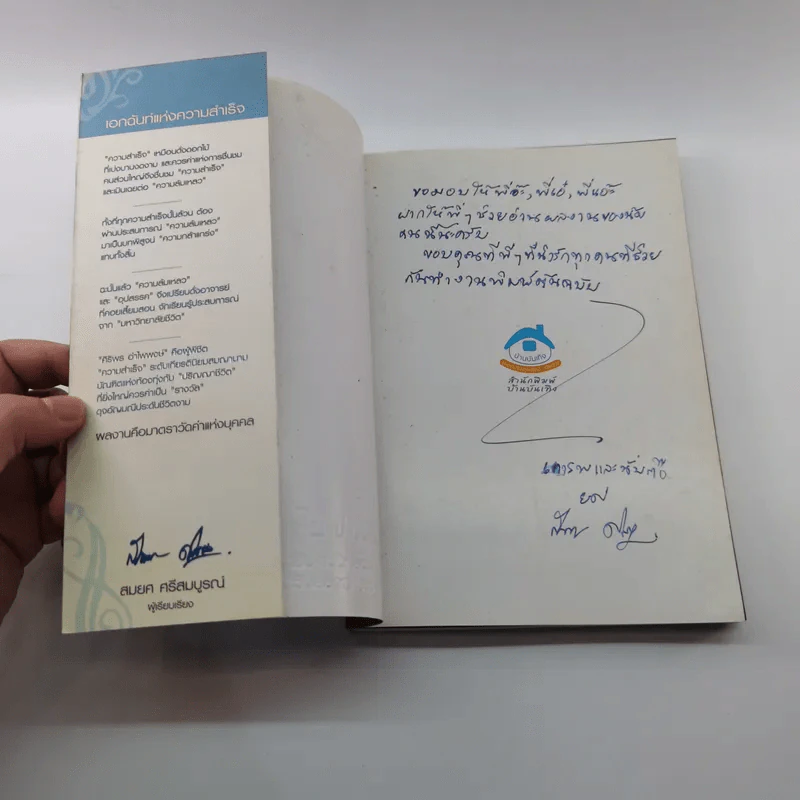 เอกฉันท์แห่งความสำเร็จ
"ความสำเร็จ" เหมือนดั่งดอกไม้
ที่เบ่งบานงดงาม และควรค่าแห่งการชื่นชม
คนส่วนใหญ่จึงชื่นชม "ความสำเร็จ"
และเมินเฉยต่อ "ความล้มเหลว"
ทั้งที่ทุกความสำเร็จนั้นล้วน ต้อง
ผ่านประสบการณ์ "ความล้มเหลว"
มาเป็นบทพิสูจน์ "ความกล้าแกร่ง"
แทบทั้งสิ้น
ฉะนั้นแล้ว "ความล้มเหลว"
และ "อุปสรรค" จึงเปรียบดั่งอาจารย์
ที่คอยเสี้ยมสอน จักเรียนรู้ประสบการณ์
จาก "มหาวิทยาลัยชีวิต"
"ศิริพร อำไพพงษ์" คือผู้พิชิต
"ความสำเร็จ" ระดับเกียรตินิยมสมญานาม
บัณฑิตแห่งท้องทุ่งกับ "ปริญญาชีวิต"
ที่ยิ่งใหญ่ควรค่าเป็น "รางวัล"
ดุจอัญมณีประดับชีวิตงาม
ผลงานคือมาตราวัดค่าแห่งบุคคล
สมยศ ศรีสมบูรณ์
ผู้เรียบเรียง
ขอมอบให้พี่อ๊ะ, พี่เอ๋, พี่แอ๊ะ
ฝากให้พี่ๆ ช่วยอ่านผลงานของน้อง
คนนี้นะครับ
ขอบคุณที่พี่ๆ ที่น่ารักทุกคนที่ช่วย
กันทำงานพิมพ์ต้นฉบับ
บ้านบันเทิง
สำนักพิมพ์
บ้านบันเทิง
เคารพและนับถือ
ยศ